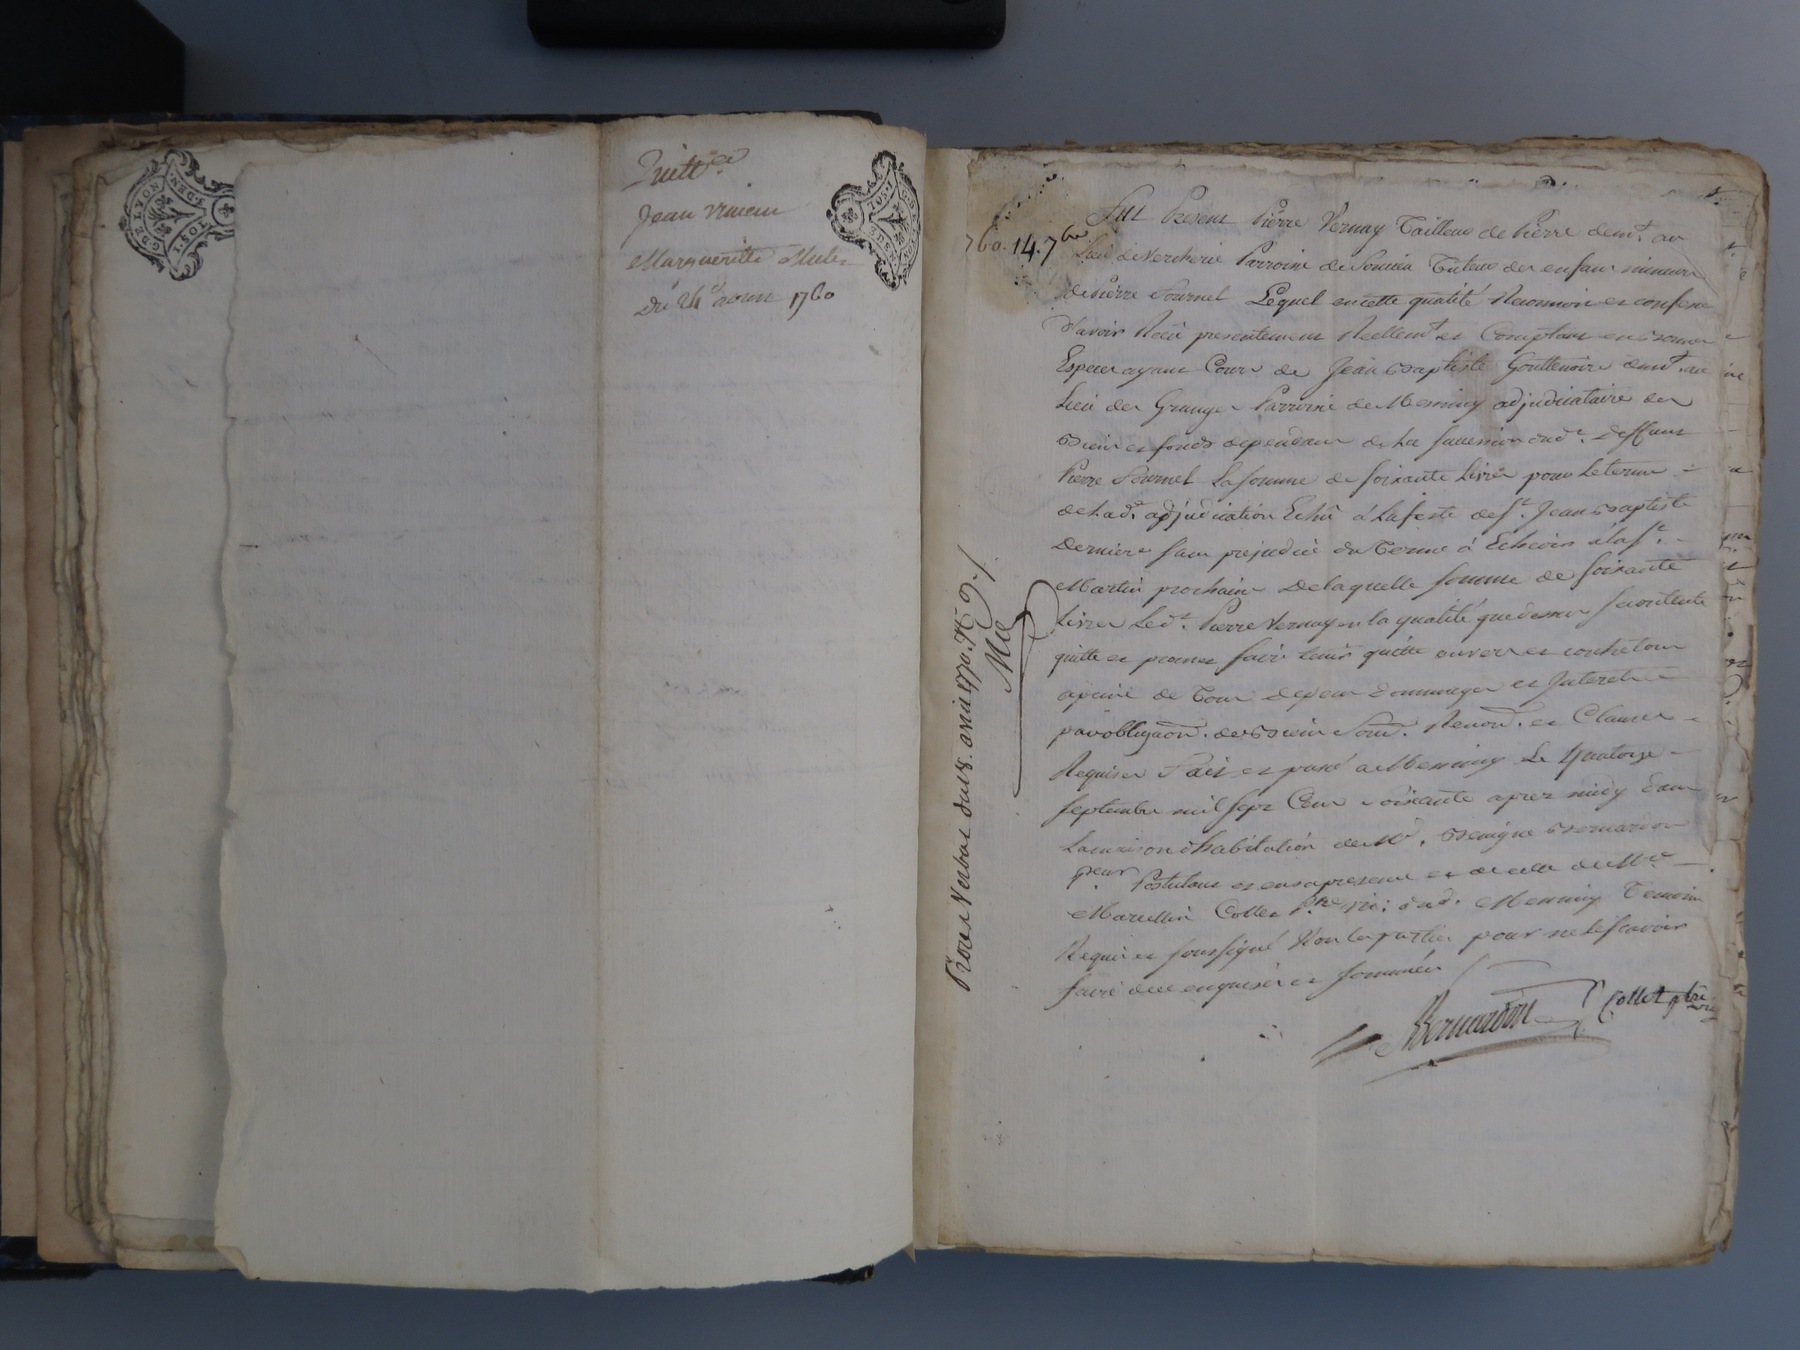 Quitt.ce
Jean
Margueritte
Du 24e aoust 1760
GDE LYON
1760. 14. 7bre
Fut Present Pierre Vernay Tailleur de Pierre demt. au
Lieu de Parroisse de Tuteur des enfans mineurs
de Pierre Fournel Lequel en cette qualité Reconnoit et confesse
d'avoir Receu presentement Reellemt. et Comptant en bonnes
Especes ayant Cours de Jean Baptiste Gouttenoire demt. au
Lieu des Granges Parroisse de Messimy adjudicataire des
Biens et fonds dependans de La succession dud. deffunt
Pierre Fournel La somme de soixante Livres pour Le terme
de Lad. adjudication Echû a La feste de St. Jean Baptiste
Derniere sans prejudice du Terme à Echeoir a la St.
Martin prochaine De laquelle somme de soixante
Livres Led. Pierre Vernay en la qualité que dessus se contente
quitte et promet faire tenir quitte envers et contre tous
a peine de Tous depens dommages et Interets
par obligaon. de Biens Soum. Renon. et Clauses
Requises Fait et passé a Messimy Le Quatorze
septembre mil sept Cent soixante aprez midy dans
La maison d'habitation de Me. Benigne Bernardon
Postulant et en sa presence et de celle de Me
Marcellin Collet Ptre vic: dud. Messimy Temoins
Requis et soussigné Non les parties pour ne le scavoir
faire de ce enquises et sommées
Bernardon Collet ptre vic
Procès Verbal du 18. avril 1770. No 9